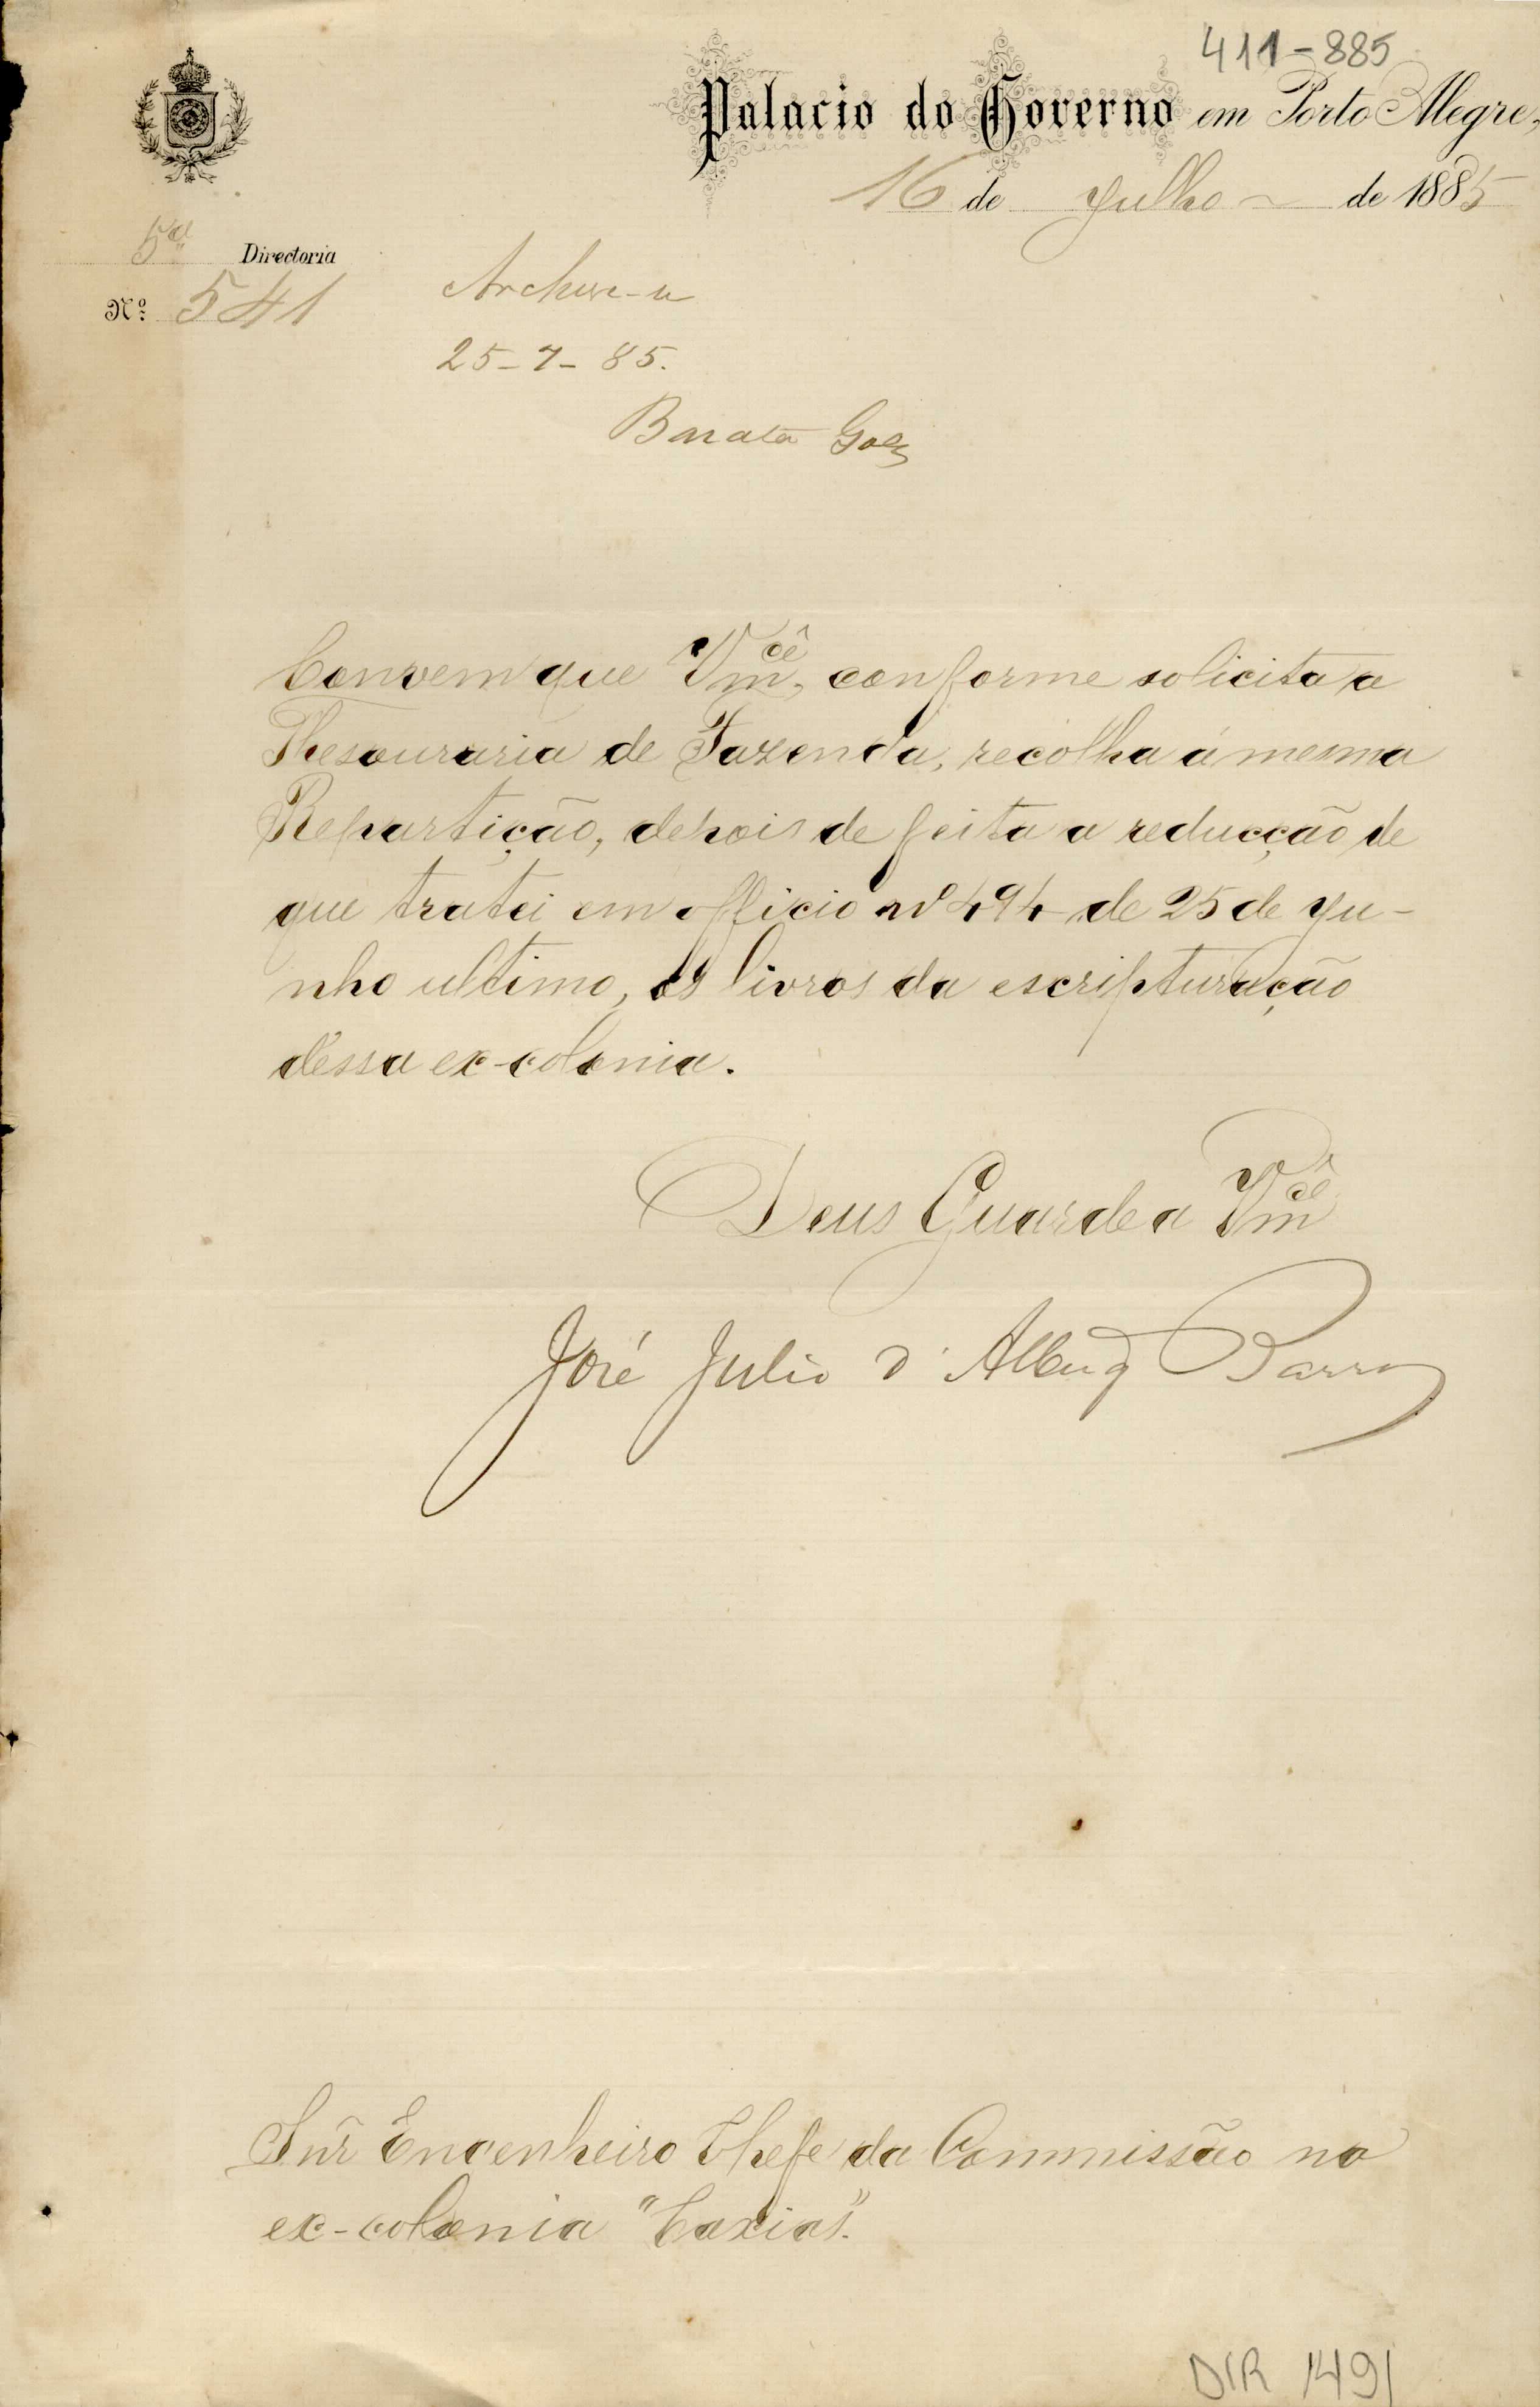 411-885
Palacio do Governo em Porto Alegre,
16 de Julho de 1885
5ª Directoria
Nº 541
Archive-se
25-7-85.
Barata Góes
Convem que Vmcê, conforme solicita a
Thesouraria de Fazenda, recolha á mesma
Repartição, depois de feita a reducção de
que tratei em officio nº 494 de 25 de Ju-
nho ultimo, os livros da escripturação
dessa ex-colonia.
Deus Guarde a Vmcê
José Julio d'Albuq Barros
Snr Engenheiro Chefe da Commissão na
ex-colonia "Caxias".
DIR 1491